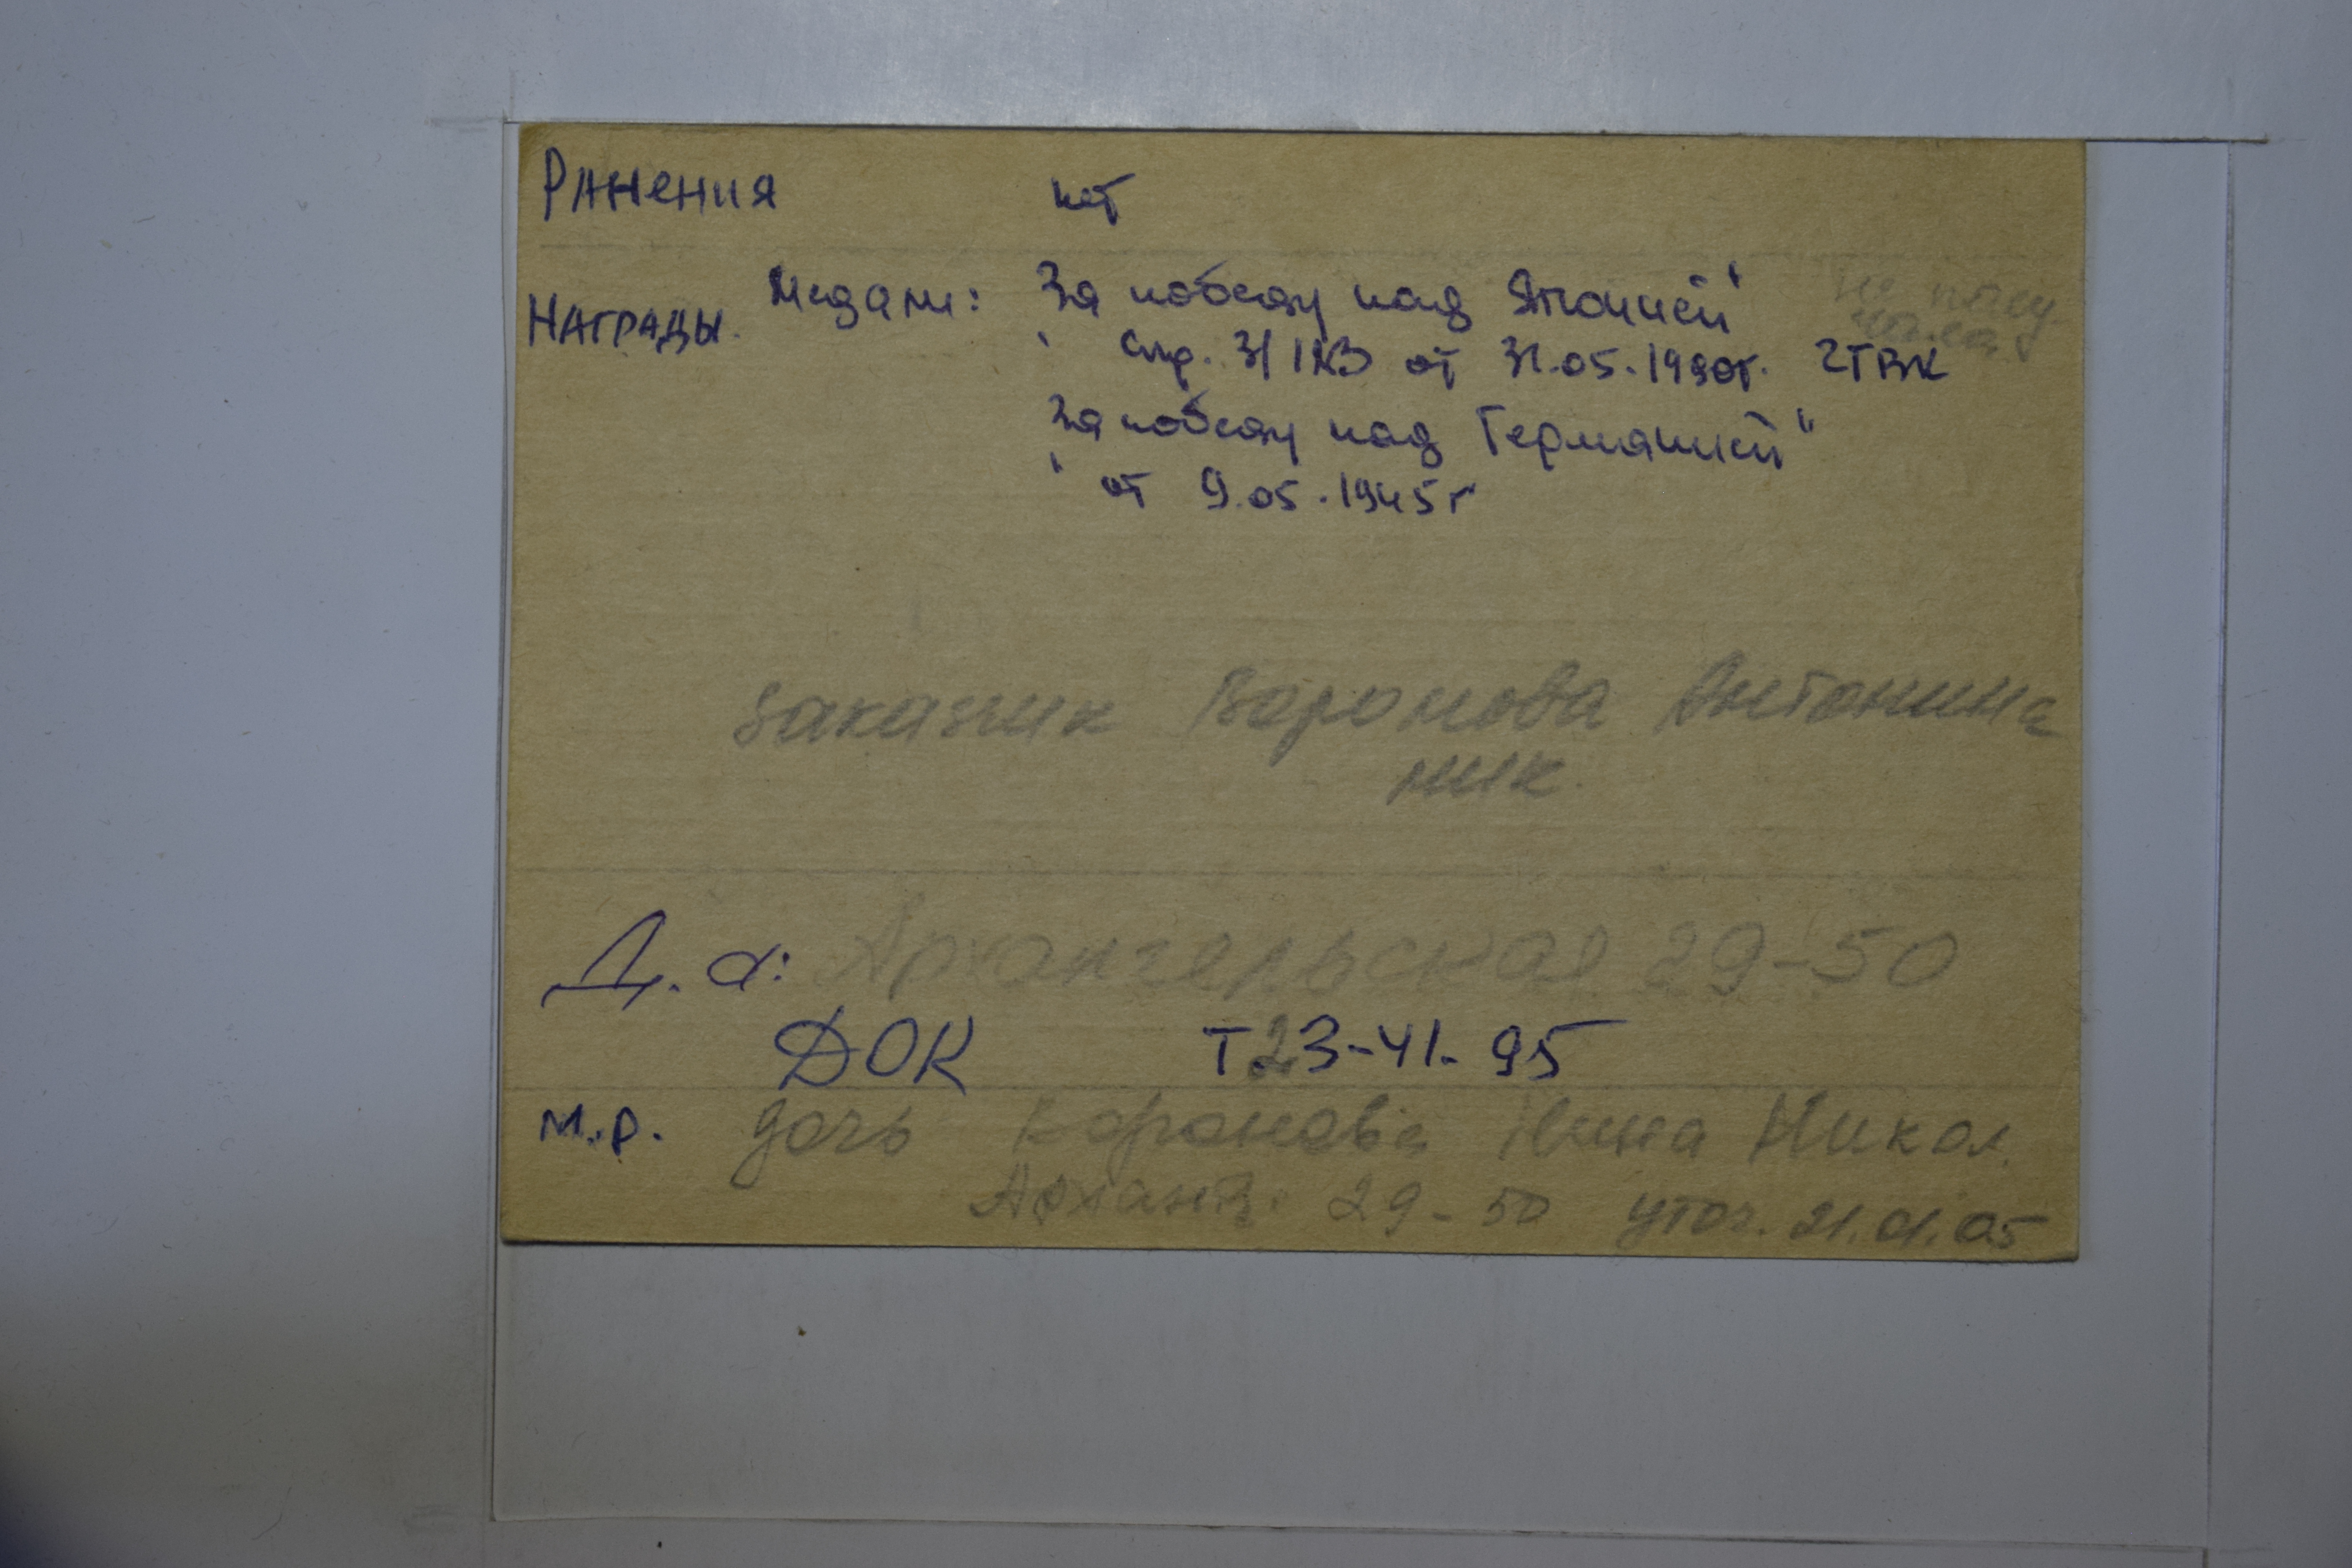 РАНЕНИЯ нет
НАГРАДЫ. Медали: "За победу над Японией" не полу-
чила
Спр. 3/1183 от 31.05.1990г. ГТВК
"За победу над Германией"
от 9.05.1945г
заказник Воронова Антонина
ник.
Д. а: Архангельская 29-50
ДОК Т. 23-41-95
М.р. дочь Воронова Нина Никол.
Арханг. 29-50 уточ. 21.01.05